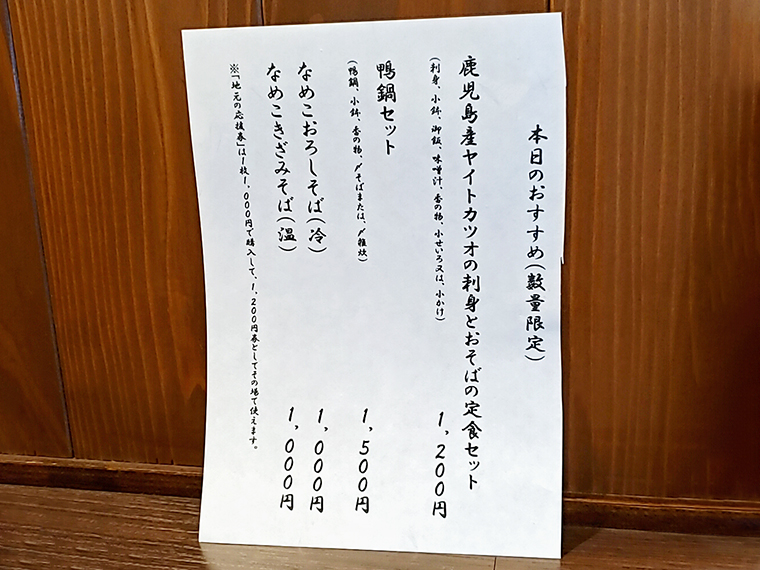 本日のおすすめ(数量限定)
鹿児島産ヤイトカツオの刺身とおそばの定食セット
(刺身、小鉢、御飯、味噌汁、香の物、小せいろ又は、小かけ)
1,200円
鴨鍋セット
(鴨鍋、小鉢、香の物、〆そばまたは、〆雑炊)
1,500円
なめこおろしそば(冷) 1,000円
なめこきざみそば(温) 1,000円
※「地元の応援券」は1枚1,000円で購入して、1,200円券としてその場で使えます。